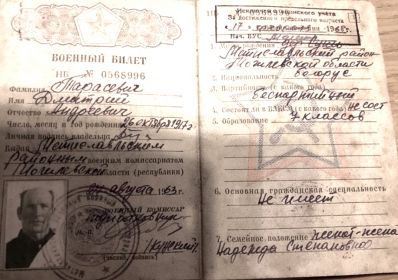 ВОЕННЫЙ БИЛЕТ
НБ № 0568996
Фамилия Тарасевич
Имя Дмитрий
Отчество Андреевич
Число, месяц и год рождения 26 октября 1917 г.
Личная подпись владельца
Выдан Мстиславльским
Районным военным комиссариатом
Могилевской области (республики)
07 августа 1963 г.
ВОЕННЫЙ КОМИССАР
М.П.
(звание, подпись)
Исключен с воинского учёта
За достижением предельного возраста
17 1968 г.
Нач. ВУС
Мстиславльский район
Могилевской области
2. Национальность белорус
3. Партийность (с какого года)
беспартийный
4. Состоит ли в ВЛКСМ (с какого года) не сост
5. Образование 7 классов
6. Основная гражданская специальность
Не имеет
7. Семейное положение женат - жена
Надежда Степановна